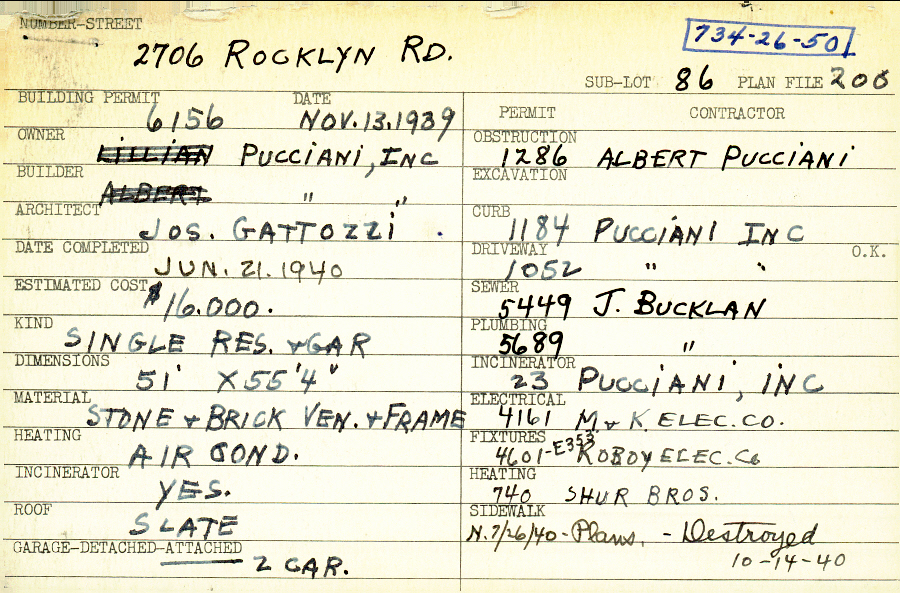 NUMBER-STREET
2706 ROCKLYN RD.
734-26-50
SUB-LOT 86 PLAN FILE 200
BUILDING PERMIT DATE
6156 NOV. 13. 1939
OWNER
LILLIAN PUCCIANI, INC
BUILDER
ALBERT " "
ARCHITECT
JOS. GATTOZZI .
DATE COMPLETED
JUN. 21. 1940
ESTIMATED COST
$16.000.
KIND
SINGLE RES. + GAR
DIMENSIONS
51' X 55'4"
MATERIAL
STONE + BRICK VEN. + FRAME
HEATING
AIR COND.
INCINERATOR
YES.
ROOF
SLATE
GARAGE-DETACHED-ATTACHED
2 CAR.
PERMIT CONTRACTOR
OBSTRUCTION
1286 ALBERT PUCCIANI
EXCAVATION
CURB
1184 PUCCIANI INC
DRIVEWAY O.K.
1052 " "
SEWER
5449 J. BUCKLAN
PLUMBING
5689 "
INCINERATOR
23 PUCCIANI, INC
ELECTRICAL
4161 M + K ELEC. CO.
FIXTURES
4601-E353 ROBOY ELEC. Co
HEATING
740 SHUR BROS.
SIDEWALK
N. 7/26/40 - Plans. - Destroyed
10-14-40